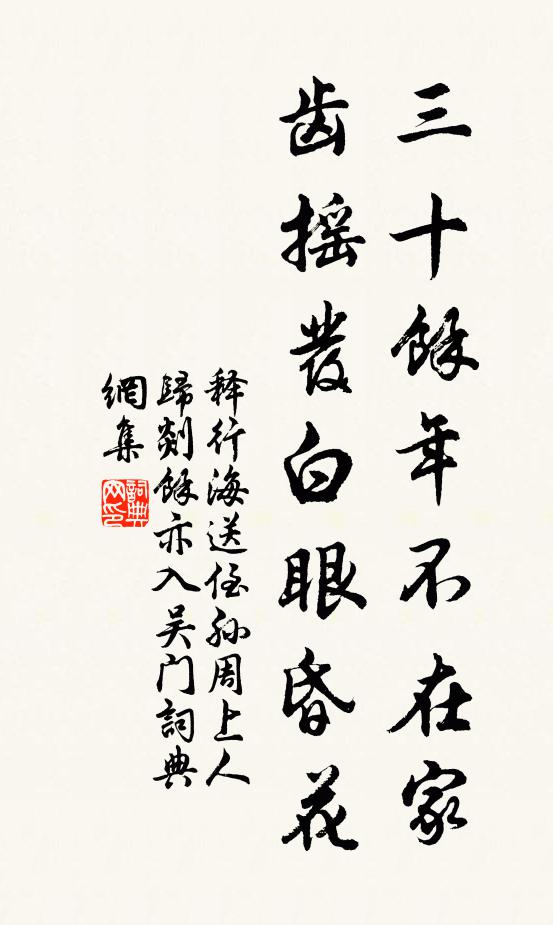 三十餘年不在家
齿摇發白眼昏花
释行海送侄孙周上人
歸剡餘亦入吴门詞典
網集
詞典
网印